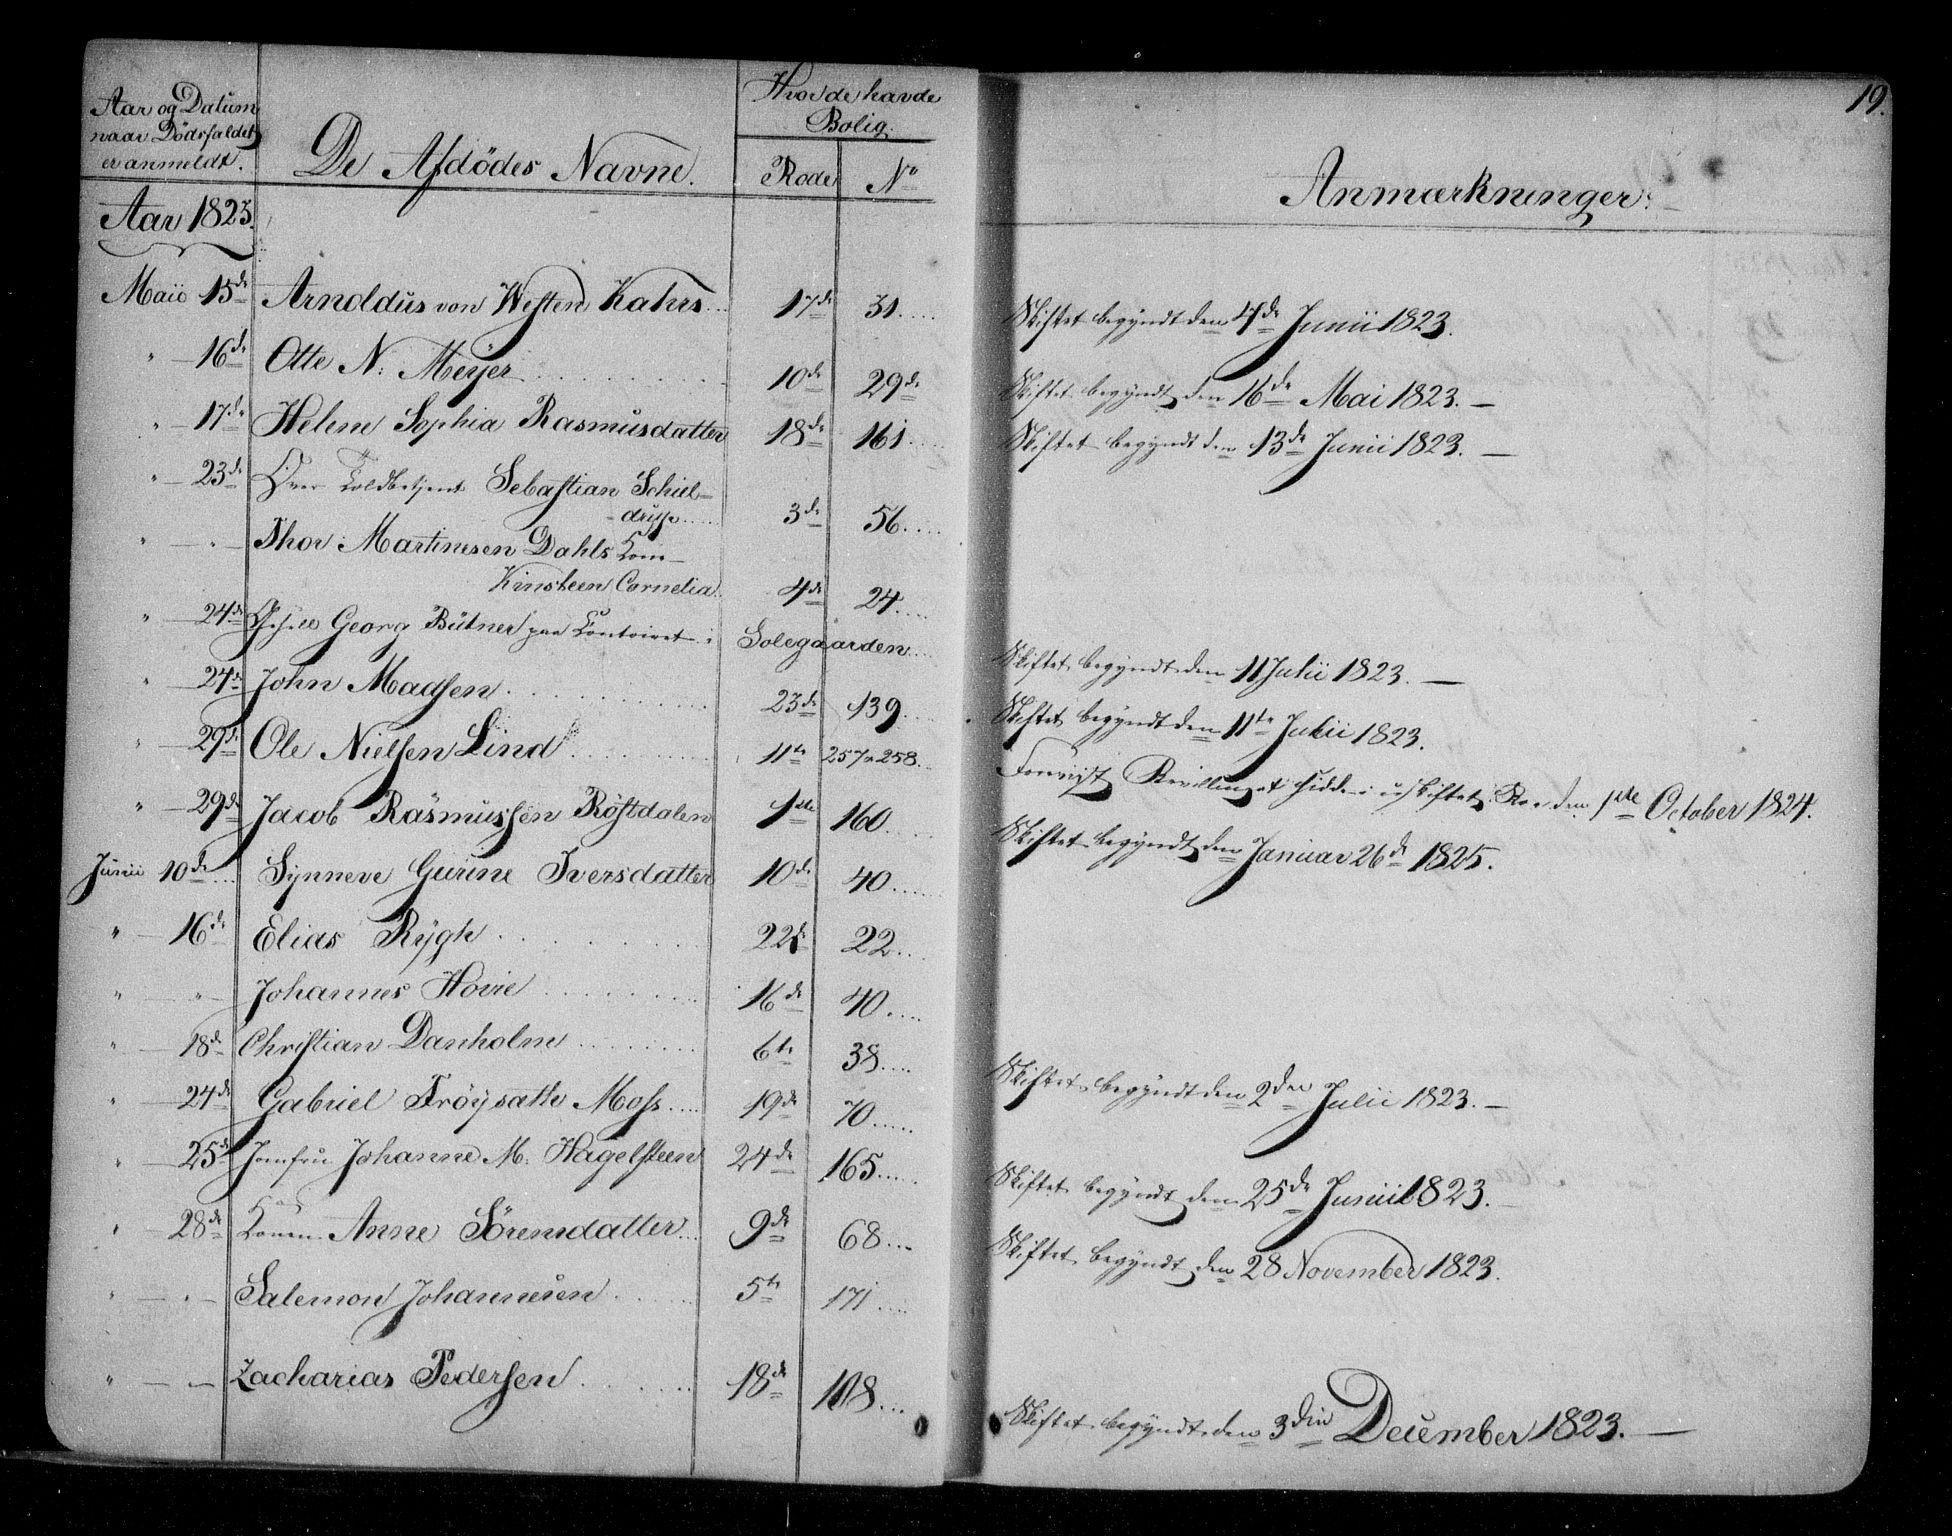 19.
Aar og Datum
naar Dödsfaldet
er anmeldt.
De Afdödes Navne.
Hvor de havde
Bolig.
Rode No
Anmærkninger.
Aar 1823.
Maii 15de Arnoldus von Westen Kahrs 17de 31. Skiftet begyndt den 4de Junii 1823.
" 16de Otte N. Meyer 10de 29de Skiftet begyndt den 16de Mai 1823.
" 17de Helene Sophia Rasmusdatter 18de 161 Skiftet begyndt den 13de Junii 1823.
" 23de Over Toldbetjent Sebastian Schiel-
drup 3de 56.
" " Thor Martinesen Dahls Kone
Kinsteen Cornelia 4de 24.
" 24de Georg Bütner paa Contoiret i Solegaarden Skiftet begyndt den 11 Julii 1823.
" 24de John Madsen 23de 139 Skiftet begyndt den 11te Julii 1823.
" 29de Ole Nielsen Lind 11te 257 258. den 1ste October 1824.
" 29de Jacob Rasmussen Röstdalen 1ste 160 Skiftet begyndt den Januar 26de 1825.
Junii 10de Synneve Gurine Iversdatter 10de 40
" 16de Elias Rÿgh 22de 22
" " Johannes Hovie 16de 40.
" 18de Christian Danholm 6te 38
" 24de Gabriel Tröysatte Moss 19de 70 Skiftet begyndt den 2den Julii 1823.
" 25de Jomfru Johanne M. Hagelsteen 24de 165 Skiftet begyndt den 25de Junii 1823.
" 28de Konen Anne Sörensdatter 9de 68 Skiftet begyndt den 28 November 1823.
" " Salemon Johannesen 5te 171
" Zacharias Pedersen 18de 108 Skiftet begyndt den 3die December 1823.